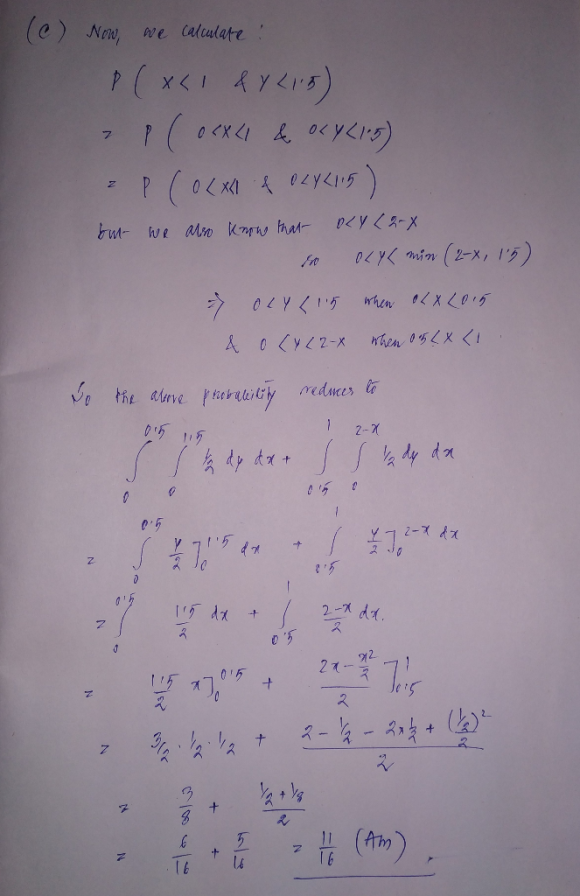 (c) Now, we calculate :
P ( X<1 & Y<1.5)
= P ( 0<X<1 & 0<Y<1.5)
= P ( 0<X<1 & 0<Y<1.5 )
but we also know that 0<Y<2-X
so 0<Y< min (2-X, 1.5)
⇒ 0<Y<1.5 when 0<X<0.5
& 0<Y<2-X when 0.5<X<1.
So the above probability reduces to
∫_0^{0.5} ∫_0^{1.5} ½ dy dx + ∫_{0.5}^{1} ∫_0^{2-x} ½ dy dx
= ∫_0^{0.5} y/2 ]_0^{1.5} dx + ∫_{0.5}^{1} y/2 ]_0^{2-x} dx
= ∫_0^{0.5} 1.5/2 dx + ∫_{0.5}^{1} (2-x)/2 dx.
= 1.5/2 x]_0^{0.5} + (2x - x²/2)/2 ]_{0.5}^{1}
= 3/2 . 1/2 . 1/2 + (2 - ½ - 2×½ + (½)²/2)/2
= 3/8 + (½ + ⅛)/2
= 6/16 + 5/16 = 11/16 (Ans) .